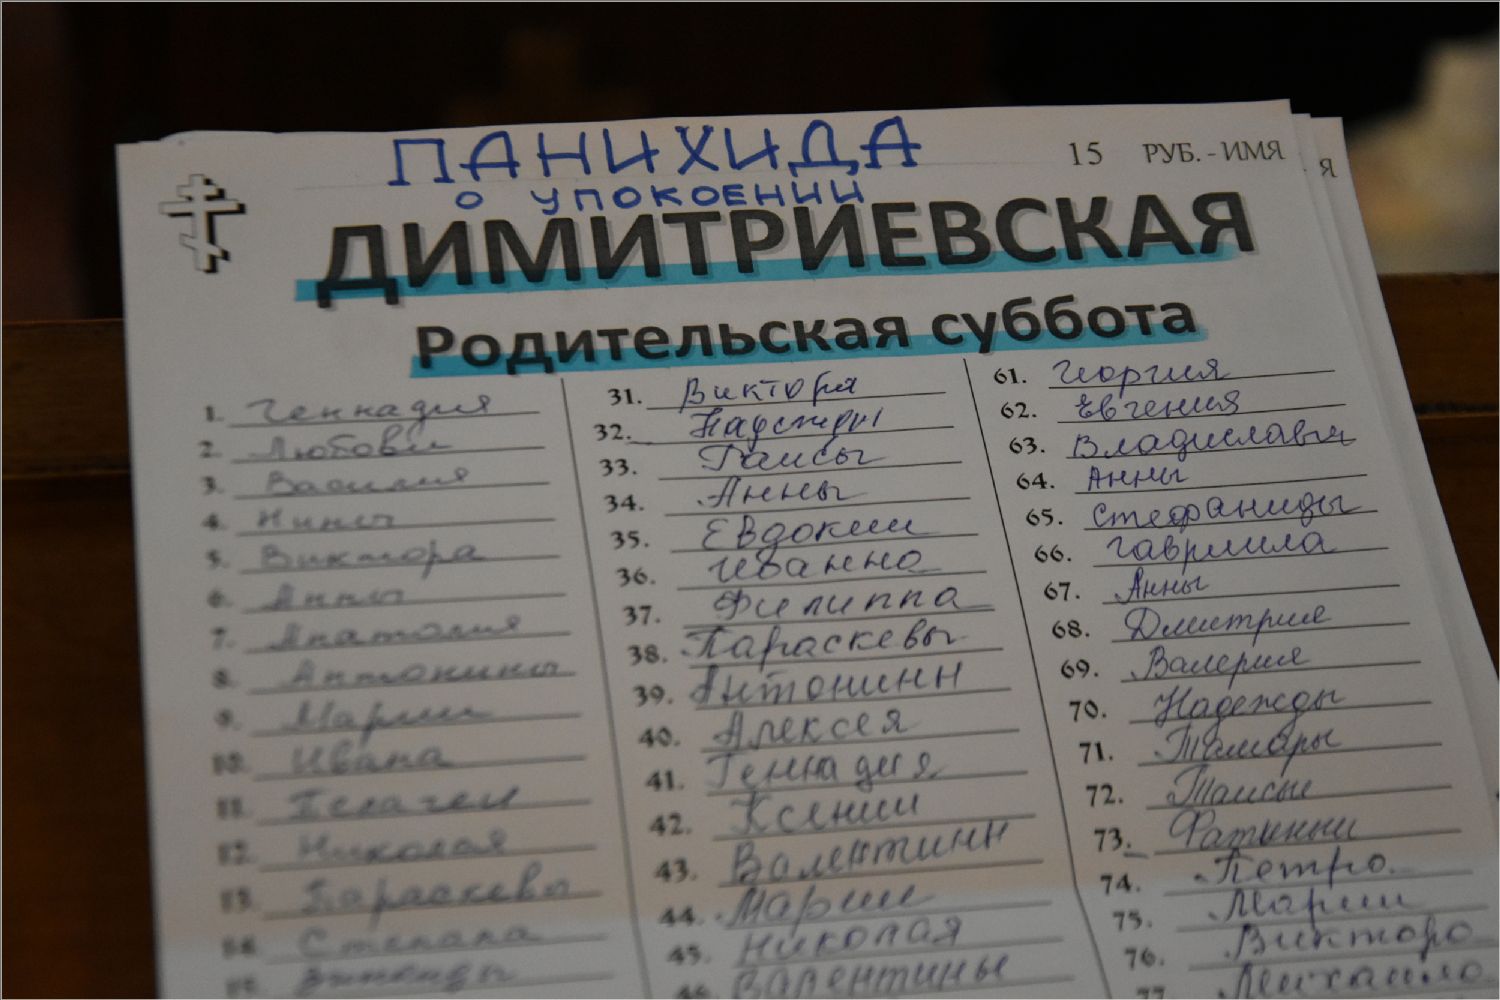 ПАНИХИДА
15 РУБ. - ИМЯ
Я
О УПОКОЕНИИ
ДИМИТРИЕВСКАЯ
Родительская суббота
1. Геннадия
2. Любови
3. Василия
4. Нины
5. Виктора
6. Анны
7. Анатолия
8. Антонины
9. Марии
10. Ивана
11. Пелагеи
12. Николая
13. Параскевы
14. Степана
15.
31. Виктора
32. Надежды
33. Раисы
34. Анны
35. Евдокии
36. Иванна
37. Филиппа
38. Параскевы
39. Антонинн
40. Алексея
41. Геннадия
42. Ксении
43. Валентинн
44. Марии
45. Николая
46. Валентины
61. Георгия
62. Евгения
63. Владиславы
64. Анны
65. Стефаниды
66. Гавриила
67. Анны
68. Дмитрие
69. Валерия
70. Надежды
71. Тамары
72. Таисы
73. Фатинии
74. Петро
75. Марии
76. Викторо
77. Михаило